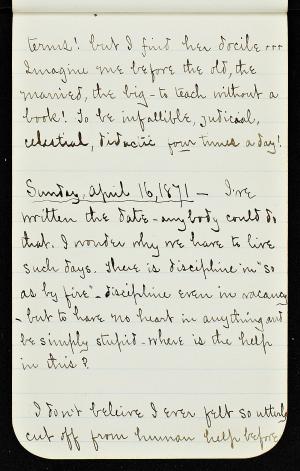 terms! but I find her docile...
Imagine me before the old, the
married, the big - to teach without a
book! To be infallible, judicial,
celestial, didactic four times a day!
Sunday, April 16, 1871 - I've
written the date - anybody could do
that. I wonder why we have to live
such days. There is discipline in "so
as by fire" - discipline even in vacancy
- but to have no heart in anything and
be simply stupid - where is the help
in this?
I don't beleive I ever felt so utterly
cut off from human help before